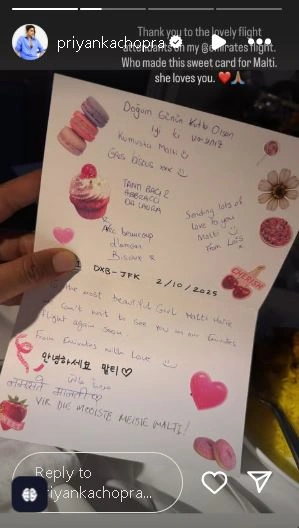 priyankachopra
Thank you to the lovely flight
attendants on my @emirates flight.
Who made this sweet card for Malti.
she loves you. ❤️🙏
Doğum Günün Kutlu Olsun
İyi ki varsınız
Kumusta Malti
Gros bisous xxx
TANTI BACI E
ABBRACCI
DA LAURA
Avec beaucoup
d'amour
Bisoux
Sending lots of
love to you
Malti
From Lois
CHERISH
DXB-JFK 2/10/2025
the most beautiful Girl Malti Marie
can't wait to see you on our Emirates
flight again soon
From Emirates with Love
안녕하세요 말티♡
नमस्ते मालती
VIR DIE MOOISTE MEISIE MALTI!
Reply to
priyankachopra...